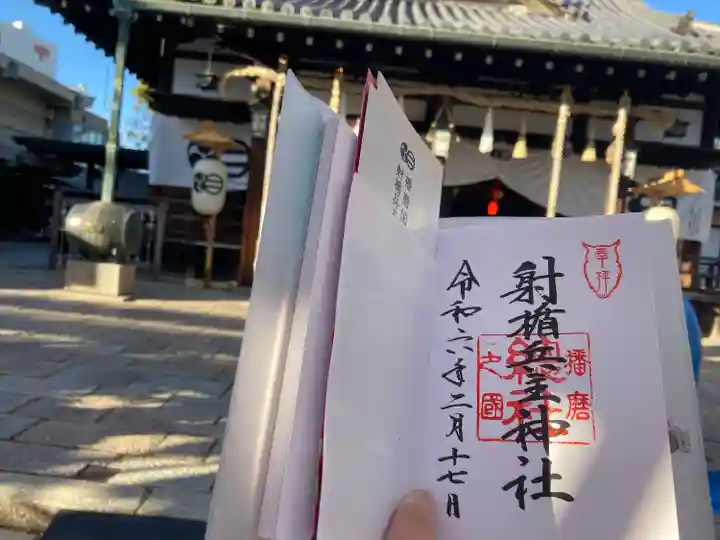 奉拝
射楯兵主神社
播磨
総社
之國
令和六年二月十七日
播磨国
射楯兵